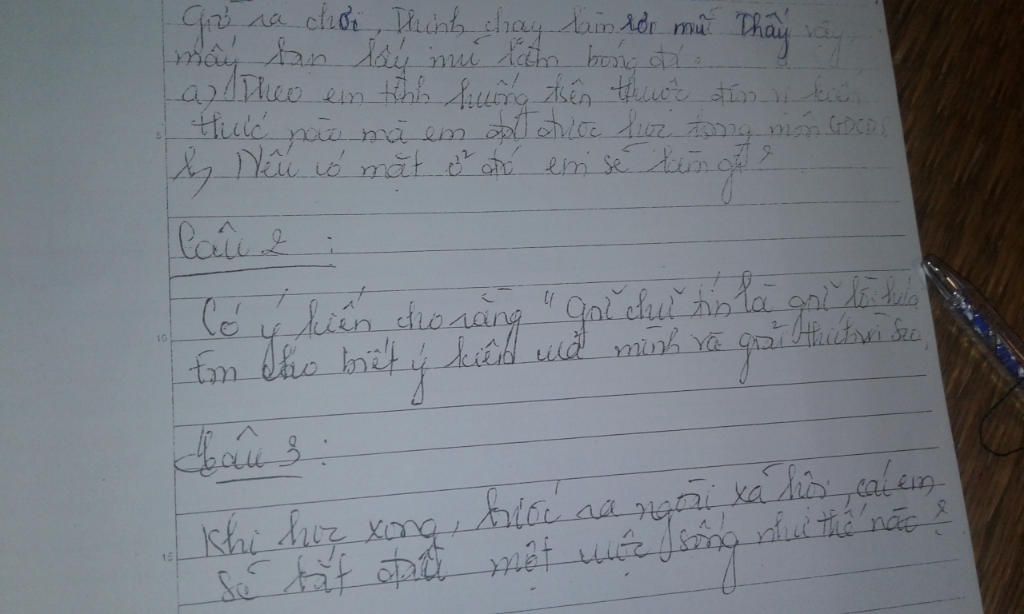 Giờ ra chơi, Thinh chạy làm rơi mũ Thấy vậy,
mấy bạn lấy mũ làm bóng đá.
a) Theo em tình huống trên thuộc đơn vị kiến
thức nào mà em đã được học trong môn GDCD8
b, Nếu có mặt ở đó em sẽ làm gì?
Câu 2 :
Có ý kiến cho rằng "Giữ chữ tín là giữ lời hứa
Em cho biết ý kiến của mình và giải thích vì sao.
Câu 3 :
Khi học xong, bước ra ngoài xã hội, các em
sẽ bắt đầu một cuộc sống như thế nào?